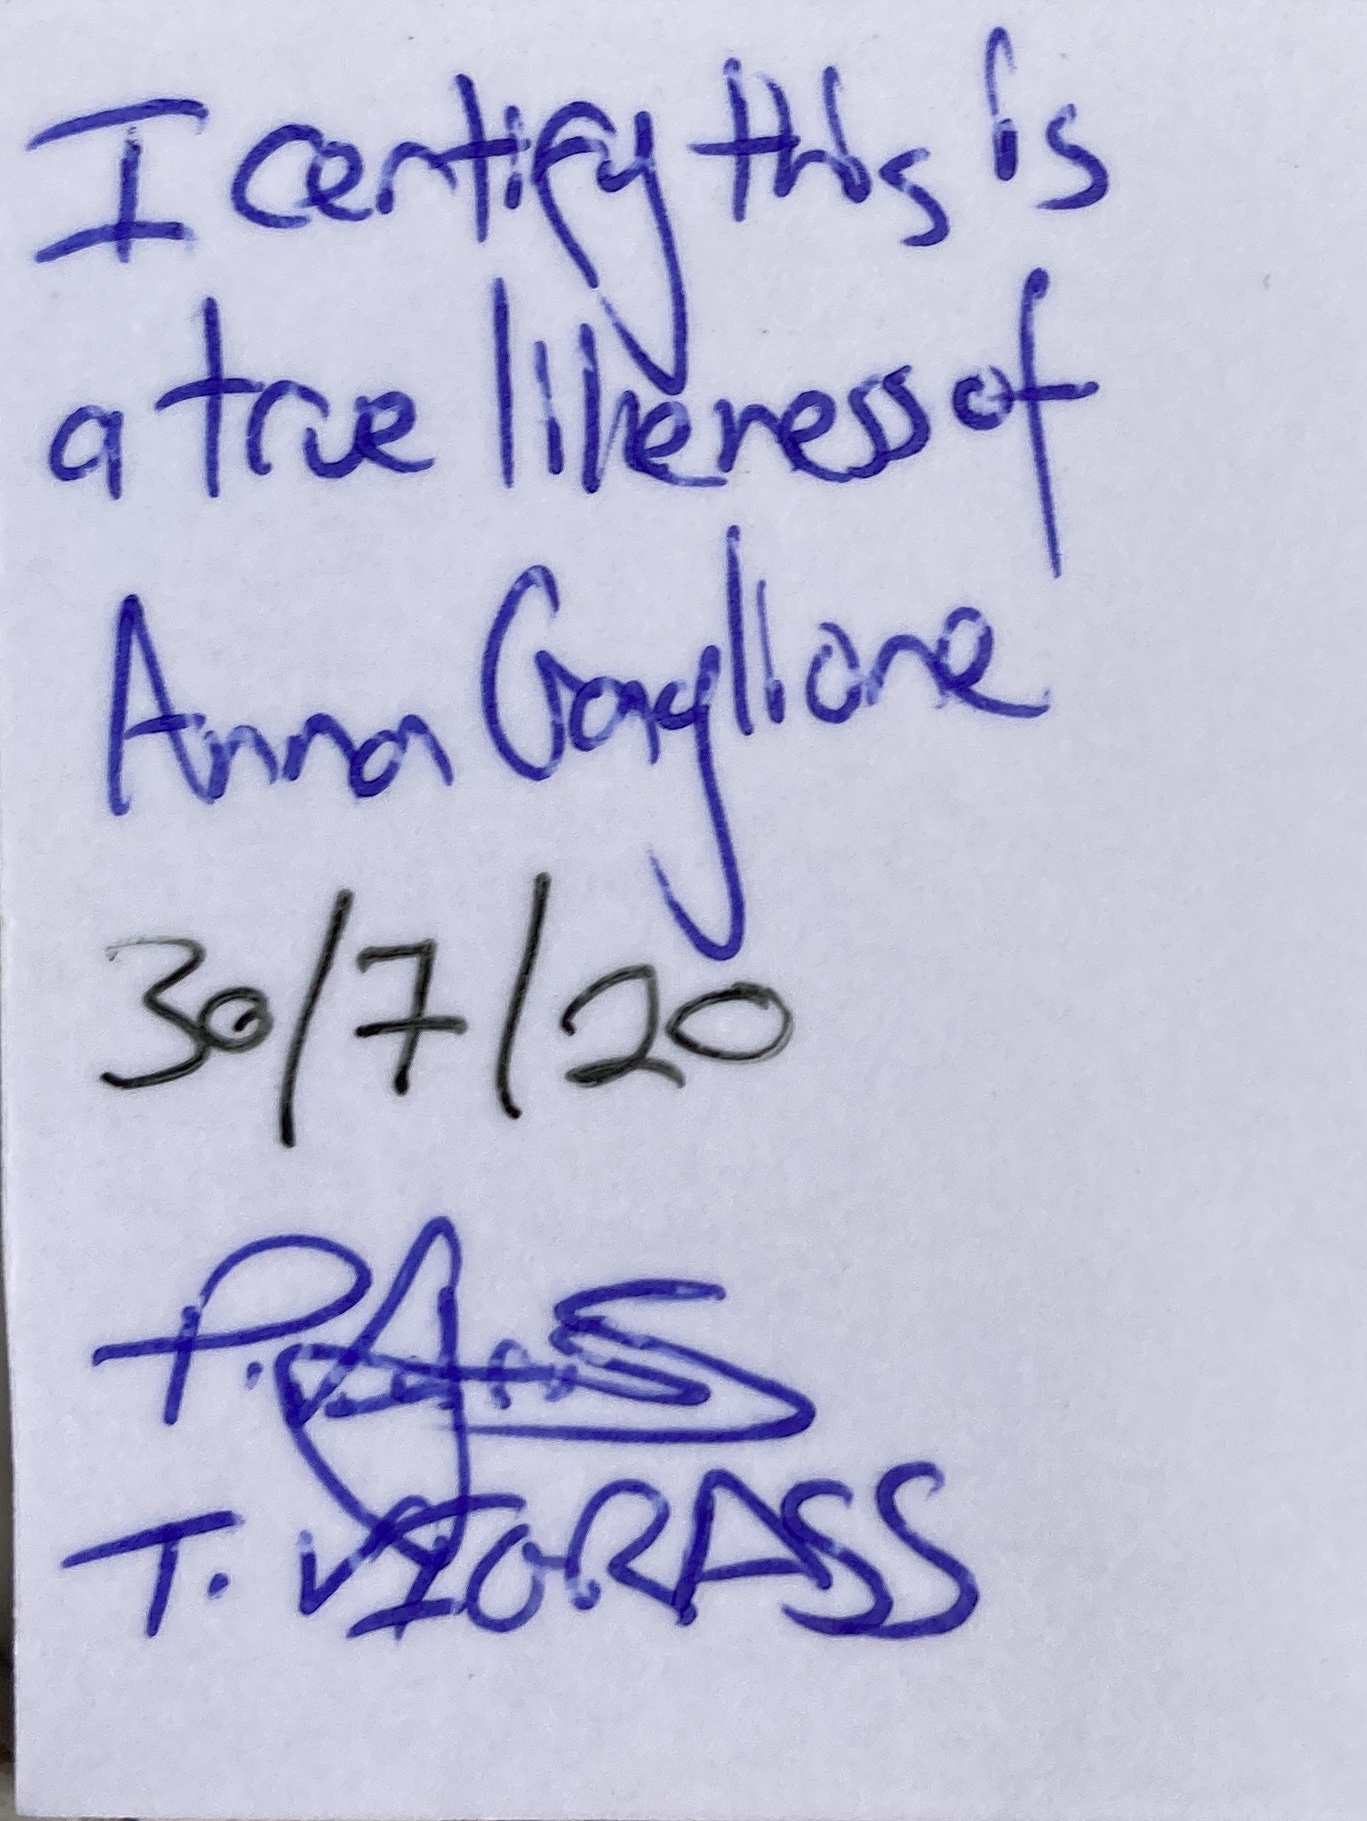 I certify this is
a true likeness of
Anna Gaglione
30/7/20
T. VIGRASS